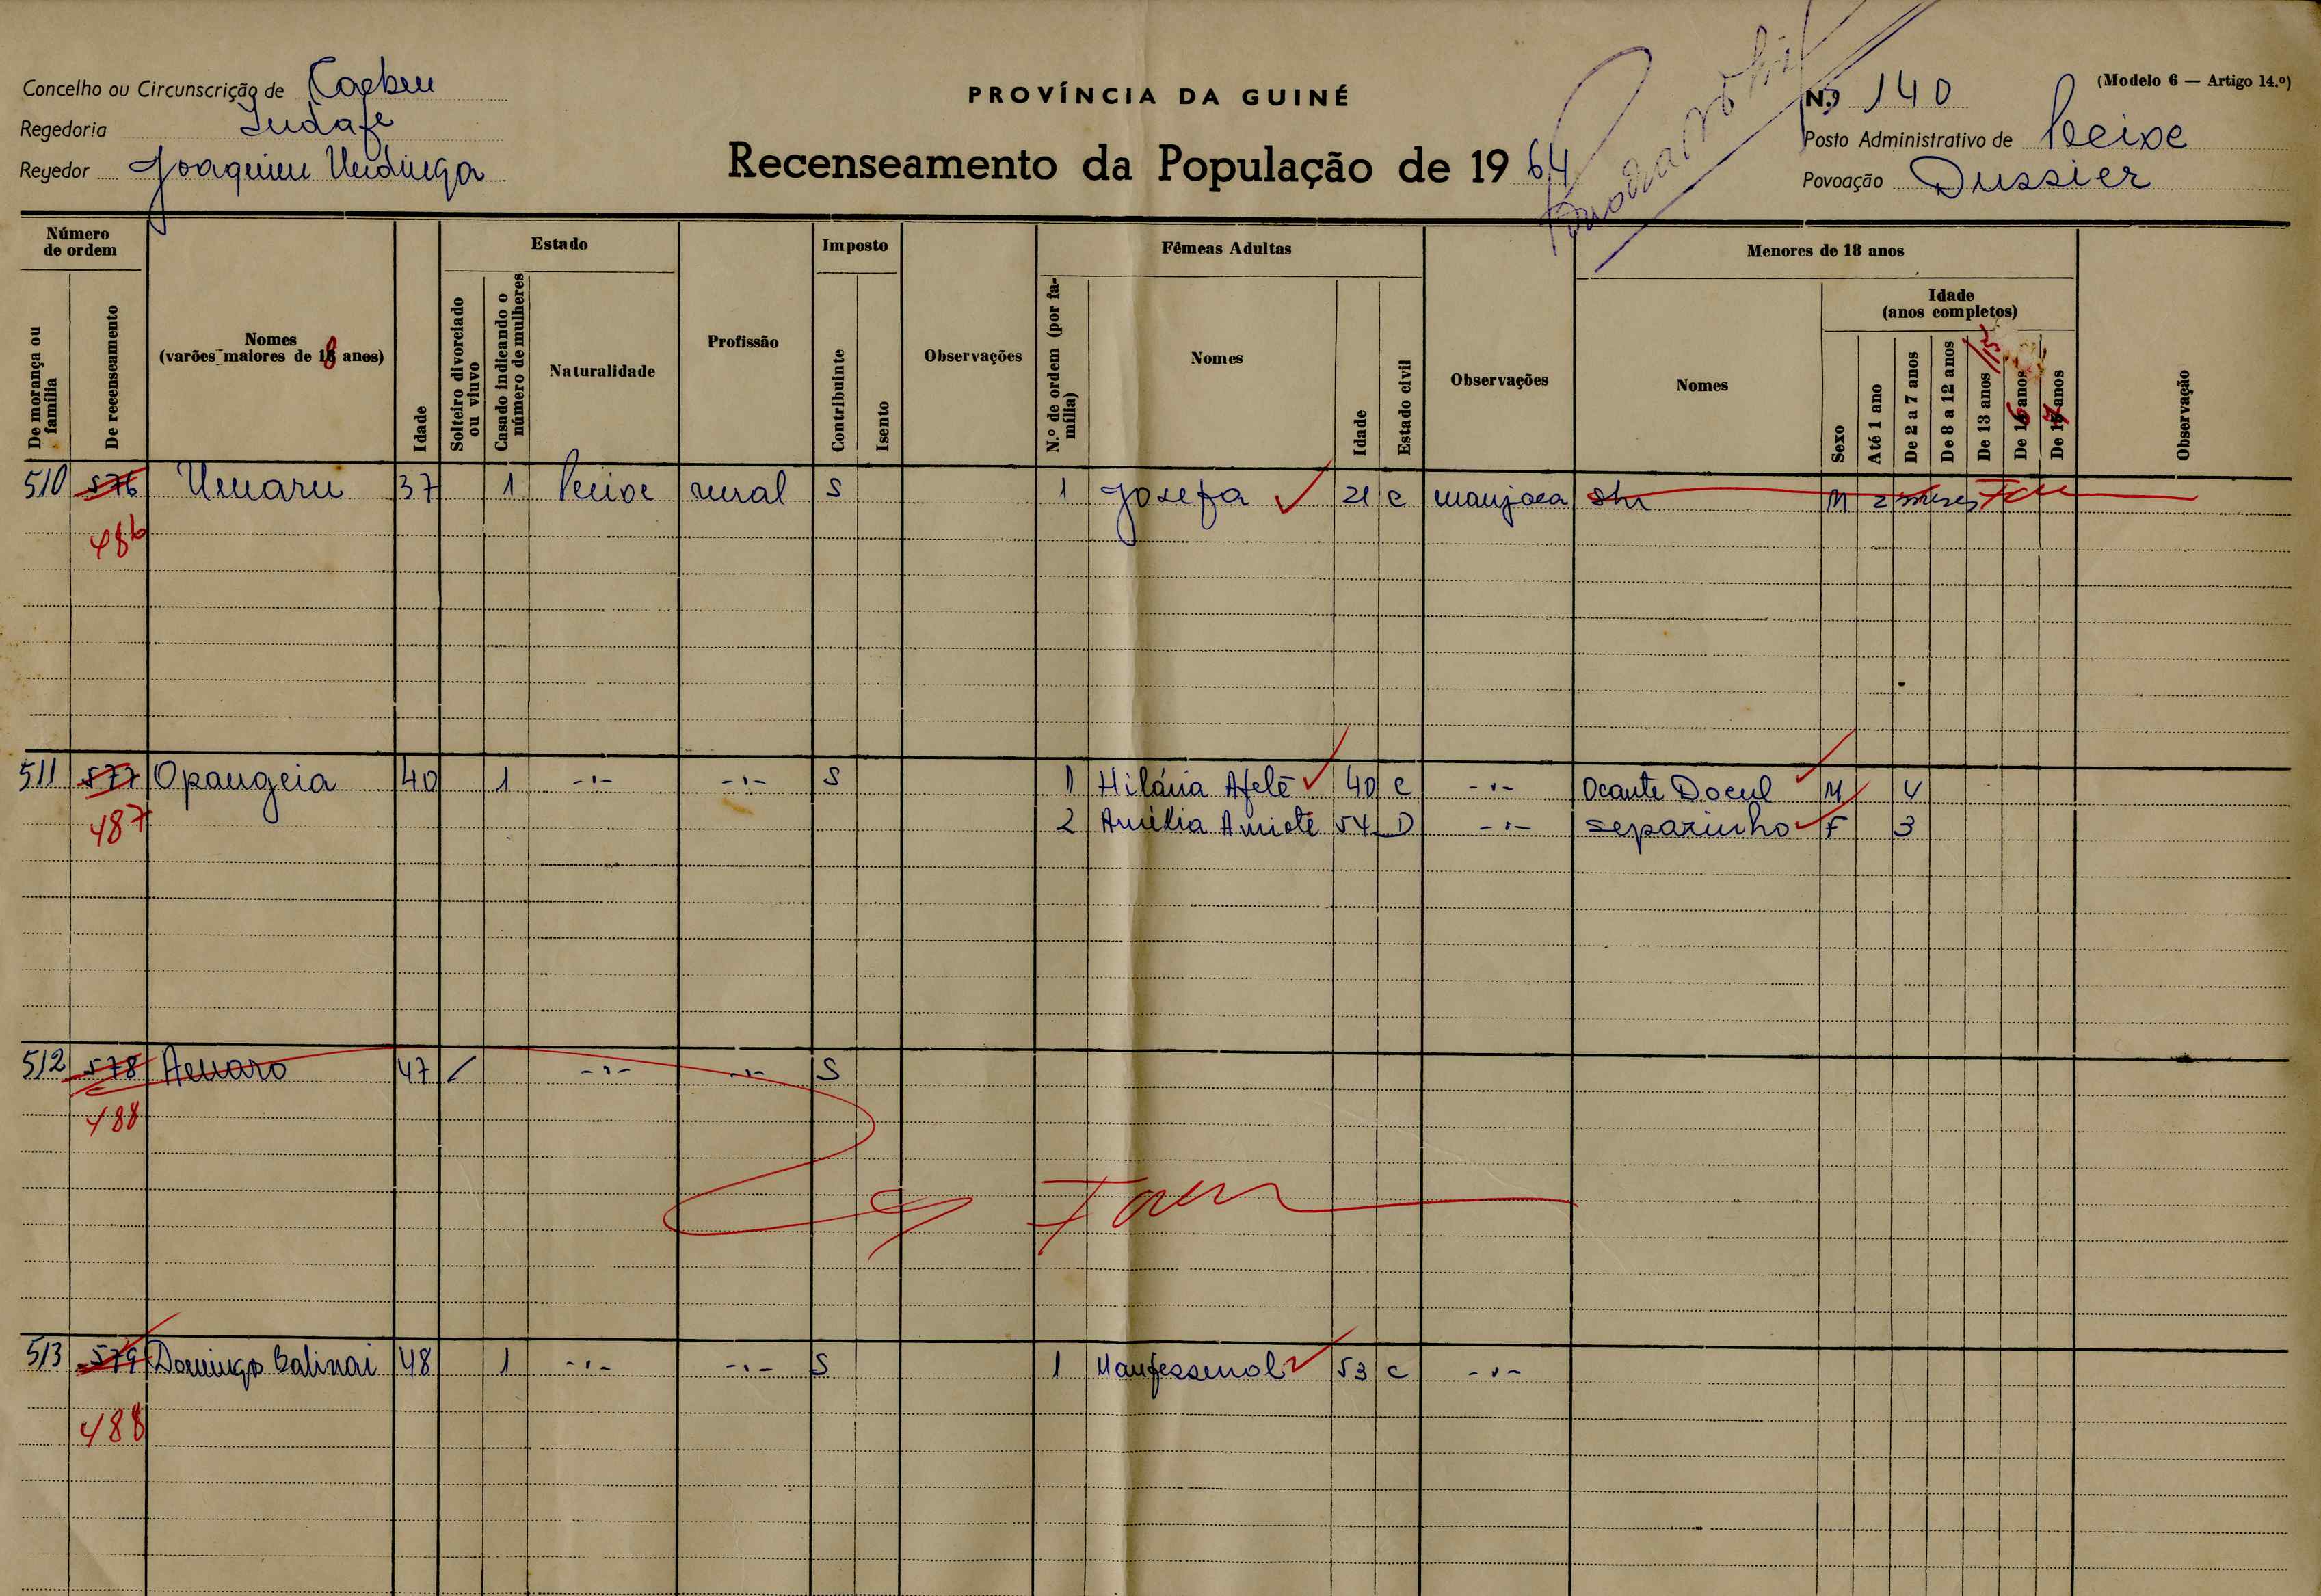 Concelho ou Circunscrição de Caebeu
Regedoria Indafe
Regedor Joaquim
PROVÍNCIA DA GUINÉ
Recenseamento da População de 1964
(Modelo 6 — Artigo 14.º)
N.º 140
Posto Administrativo de Peixe
Povoação Dussier
Número de ordem
De morança ou família
De recenseamento
Nomes (varões maiores de 18 anos)
Idade
Estado
Solteiro divorciado ou viuvo
Casado indicando o número de mulheres
Naturalidade
Profissão
Imposto
Contribuinte
Isento
Observações
Fêmeas Adultas
N.º de ordem (por família)
Nomes
Idade
Estado civil
Observações
Menores de 18 anos
Nomes
Sexo
Idade (anos completos)
Até 1 ano
De 2 a 7 anos
De 8 a 12 anos
De 13 anos /15
De 16 anos
De 17 anos
Observação
510 576 Umaru 37 1 Peixe rural S 1 Josefa 21 C manjaca M 2 meses
486
511 577 Opangeia 40 1 -·- -·- S 1 Hilária Afelé 40 C -·- Ocante Docul M 4
487 2 Amélia Amioté 54 D -·- Separinho F 3
512 578 Aenaro 47 / -·- -·- S
488
513 579 Domingo Balinai 48 1 -·- -·- S 1 Manfessenol 53 C -·-
488